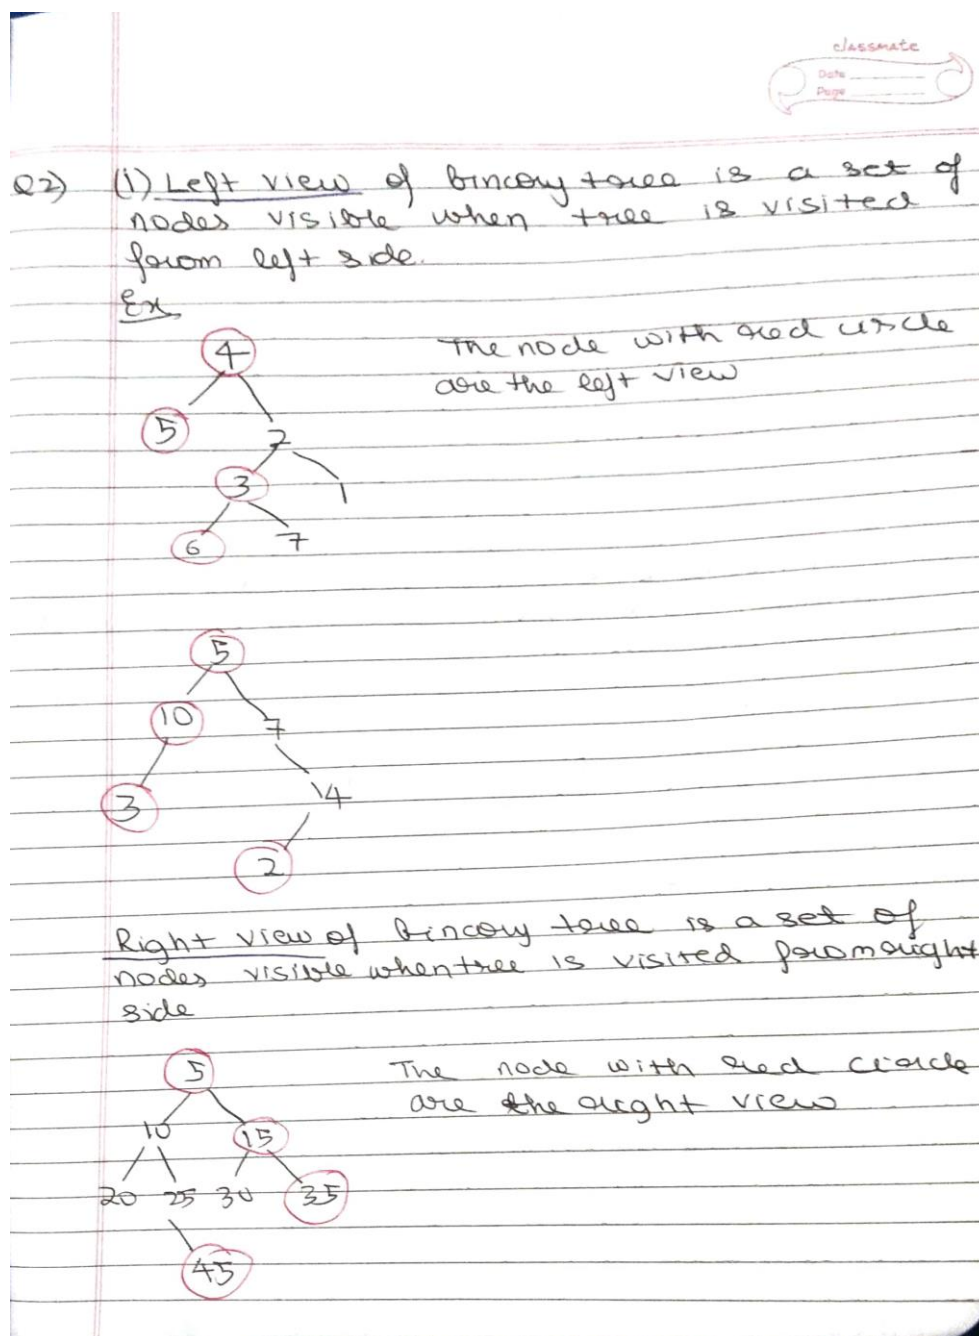 classmate
Date
Page
Q2) (i) Left view of binary tree is a set of
nodes visible when tree is visited
from left side.
Ex
The node with red circle
are the left view
4
5 2
3 1
6 7
5
10 7
3 14
2
Right view of binary tree is a set of
nodes visible when tree is visited from right
side
The node with red circle
are the right view
5
10 15
20 25 30 35
45